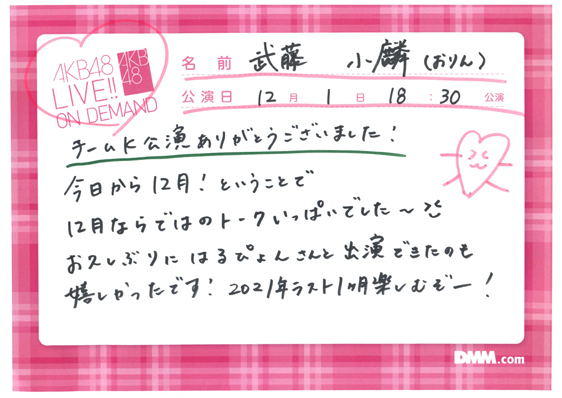 AKB48
LIVE!!
ON DEMAND
AKB
48
名前 武藤 小麟(おりん)
公演日 12月1日 18:30 公演
チームK公演ありがとうございました!
今日から12月!ということで
12月ならではのトークいっぱいでした〜
お久しぶりにはるぴょんさんと出演できたのも
嬉しかったです!2021年ラスト1ヶ月楽しむぞー!
DMM.com